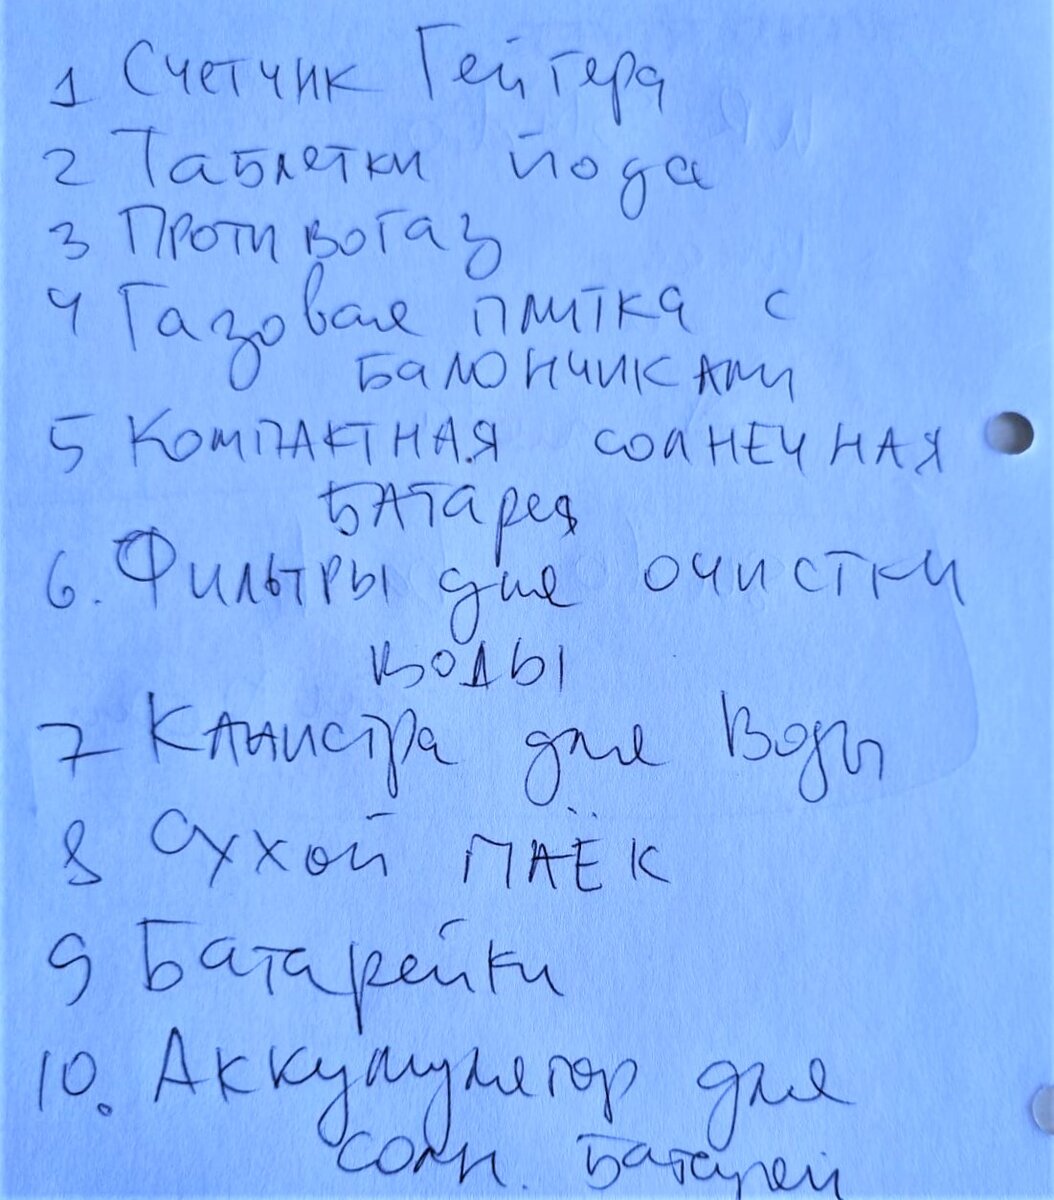 1 Счетчик Гейгера
2 Таблетки йода
3 Противогаз
4 Газовая плитка с
балончиками
5 Компактная солнечная
батарея
6. Фильтры для очистки
воды
7 Канистра для воды
8 Сухой паёк
9 Батарейки
10. Аккумулятор для
солн. батареи